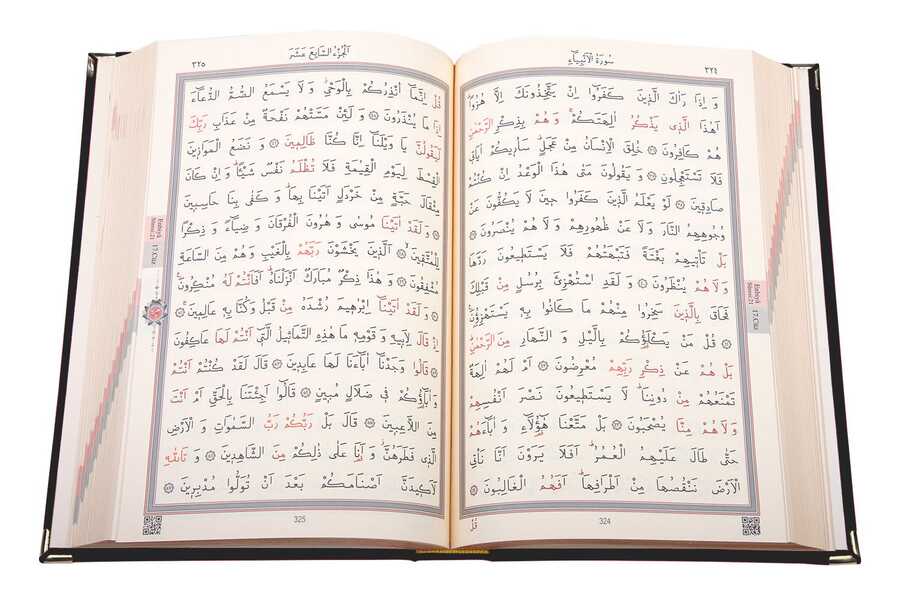 سُورَةُ الْاَنْبِيَاءِ
٣٢٤
وَ اِذَا رَاٰكَ الَّذٖينَ كَفَرُٓوا اِنْ يَتَّخِذُونَكَ اِلَّا هُزُوًاؕ
اَهٰذَا الَّذٖى يَذْكُرُ اٰلِهَتَكُمْۚ وَ هُمْ بِذِكْرِ الرَّحْمٰنِ
هُمْ كَافِرُونَ ﴿٣٦﴾ خُلِقَ الْاِنْسَانُ مِنْ عَجَلٍؕ سَاُرٖيكُمْ اٰيَاتٖى
فَلَا تَسْتَعْجِلُونِ ﴿٣٧﴾ وَ يَقُولُونَ مَتٰى هٰذَا الْوَعْدُ اِنْ كُنْتُمْ
صَادِقٖينَ ﴿٣٨﴾ لَوْ يَعْلَمُ الَّذٖينَ كَفَرُوا حٖينَ لَا يَكُفُّونَ عَنْ
وُجُوهِهِمُ النَّارَ وَ لَا عَنْ ظُهُورِهِمْ وَ لَا هُمْ يُنْصَرُونَ ﴿٣٩﴾
بَلْ تَاْتٖيهِمْ بَغْتَةً فَتَبْهَتُهُمْ فَلَا يَسْتَطٖيعُونَ رَدَّهَا
وَ لَا هُمْ يُنْظَرُونَ ﴿٤٠﴾ وَ لَقَدِ اسْتُهْزِئَ بِرُسُلٍ مِنْ قَبْلِكَ
فَحَاقَ بِالَّذٖينَ سَخِرُوا مِنْهُمْ مَا كَانُوا بِهٖ يَسْتَهْزِؤُ۫نَ
﴿٤١﴾ قُلْ مَنْ يَكْلَؤُ۬كُمْ بِالَّيْلِ وَ النَّهَارِ مِنَ الرَّحْمٰنِؕ
بَلْ هُمْ عَنْ ذِكْرِ رَبِّهِمْ مُعْرِضُونَ ﴿٤٢﴾ اَمْ لَهُمْ اٰلِهَةٌ
تَمْنَعُهُمْ مِنْ دُونِنَاؕ لَا يَسْتَطٖيعُونَ نَصْرَ اَنْفُسِهِمْ
وَ لَا هُمْ مِنَّا يُصْحَبُونَ ﴿٤٣﴾ بَلْ مَتَّعْنَا هٰٓؤُ۬لَٓاءِ وَ اٰبَٓاءَهُمْ
حَتّٰى طَالَ عَلَيْهِمُ الْعُمُرُؕ اَفَلَا يَرَوْنَ اَنَّا نَاْتِى
الْاَرْضَ نَنْقُصُهَا مِنْ اَطْرَافِهَاؕ اَفَهُمُ الْغَالِبُونَ ﴿٤٤﴾
قُلْ
324
Enbiyâ
Sûresi:21
17.Cüz
اَلْجُزْءُ السَّابِعَ عَشَرَ
٣٢٥
قُلْ اِنَّمَٓا اُنْذِرُكُمْ بِالْوَحْىِؗ وَ لَا يَسْمَعُ الصُّمُّ الدُّعَٓاءَ
اِذَا مَا يُنْذَرُونَ ﴿٤٥﴾ وَ لَئِنْ مَسَّتْهُمْ نَفْحَةٌ مِنْ عَذَابِ رَبِّكَ
لَيَقُولُنَّ يَا وَيْلَنَٓا اِنَّا كُنَّا ظَالِمٖينَ ﴿٤٦﴾ وَ نَضَعُ الْمَوَازٖينَ
الْقِسْطَ لِيَوْمِ الْقِيٰمَةِ فَلَا تُظْلَمُ نَفْسٌ شَيْـًٔاؕ وَ اِنْ كَانَ
مِثْقَالَ حَبَّةٍ مِنْ خَرْدَلٍ اَتَيْنَا بِهَاؕ وَ كَفٰى بِنَا حَاسِبٖينَ
﴿٤٧﴾ وَ لَقَدْ اٰتَيْنَا مُوسٰى وَ هٰرُونَ الْفُرْقَانَ وَ ضِيَٓاءً وَ ذِكْرًا
لِلْمُتَّقٖينَ ﴿٤٨﴾ اَلَّذٖينَ يَخْشَوْنَ رَبَّهُمْ بِالْغَيْبِ وَ هُمْ مِنَ السَّاعَةِ
مُشْفِقُونَ ﴿٤٩﴾ وَ هٰذَا ذِكْرٌ مُبَارَكٌ اَنْزَلْنَاهُؕ اَفَاَنْتُمْ لَهُ مُنْكِرُونَ
﴿٥٠﴾ وَ لَقَدْ اٰتَيْنَٓا اِبْرٰهٖيمَ رُشْدَهُ مِنْ قَبْلُ وَ كُنَّا بِهٖ عَالِمٖينَ ﴿٥١﴾
اِذْ قَالَ لِاَبٖيهِ وَ قَوْمِهٖ مَا هٰذِهِ التَّمَاثٖيلُ الَّتٖٓى اَنْتُمْ لَهَا عَاكِفُونَ
﴿٥٢﴾ قَالُوا وَجَدْنَٓا اٰبَٓاءَنَا لَهَا عَابِدٖينَ ﴿٥٣﴾ قَالَ لَقَدْ كُنْتُمْ اَنْتُمْ
وَ اٰبَٓاؤُ۬كُمْ فٖى ضَلَالٍ مُبٖينٍ ﴿٥٤﴾ قَالُٓوا اَجِئْتَنَا بِالْحَقِّ اَمْ اَنْتَ
مِنَ اللَّاعِبٖينَ ﴿٥٥﴾ قَالَ بَلْ رَبُّكُمْ رَبُّ السَّمٰوَاتِ وَ الْاَرْضِ
الَّذٖى فَطَرَهُنَّؗ وَ اَنَا عَلٰى ذٰلِكُمْ مِنَ الشَّاهِدٖينَ ﴿٥٦﴾ وَ تَاللّٰهِ
لَاَكٖيدَنَّ اَصْنَامَكُمْ بَعْدَ اَنْ تُوَلُّوا مُدْبِرٖينَ ﴿٥٧﴾
325
Enbiyâ
Sûresi:21
17.Cüz